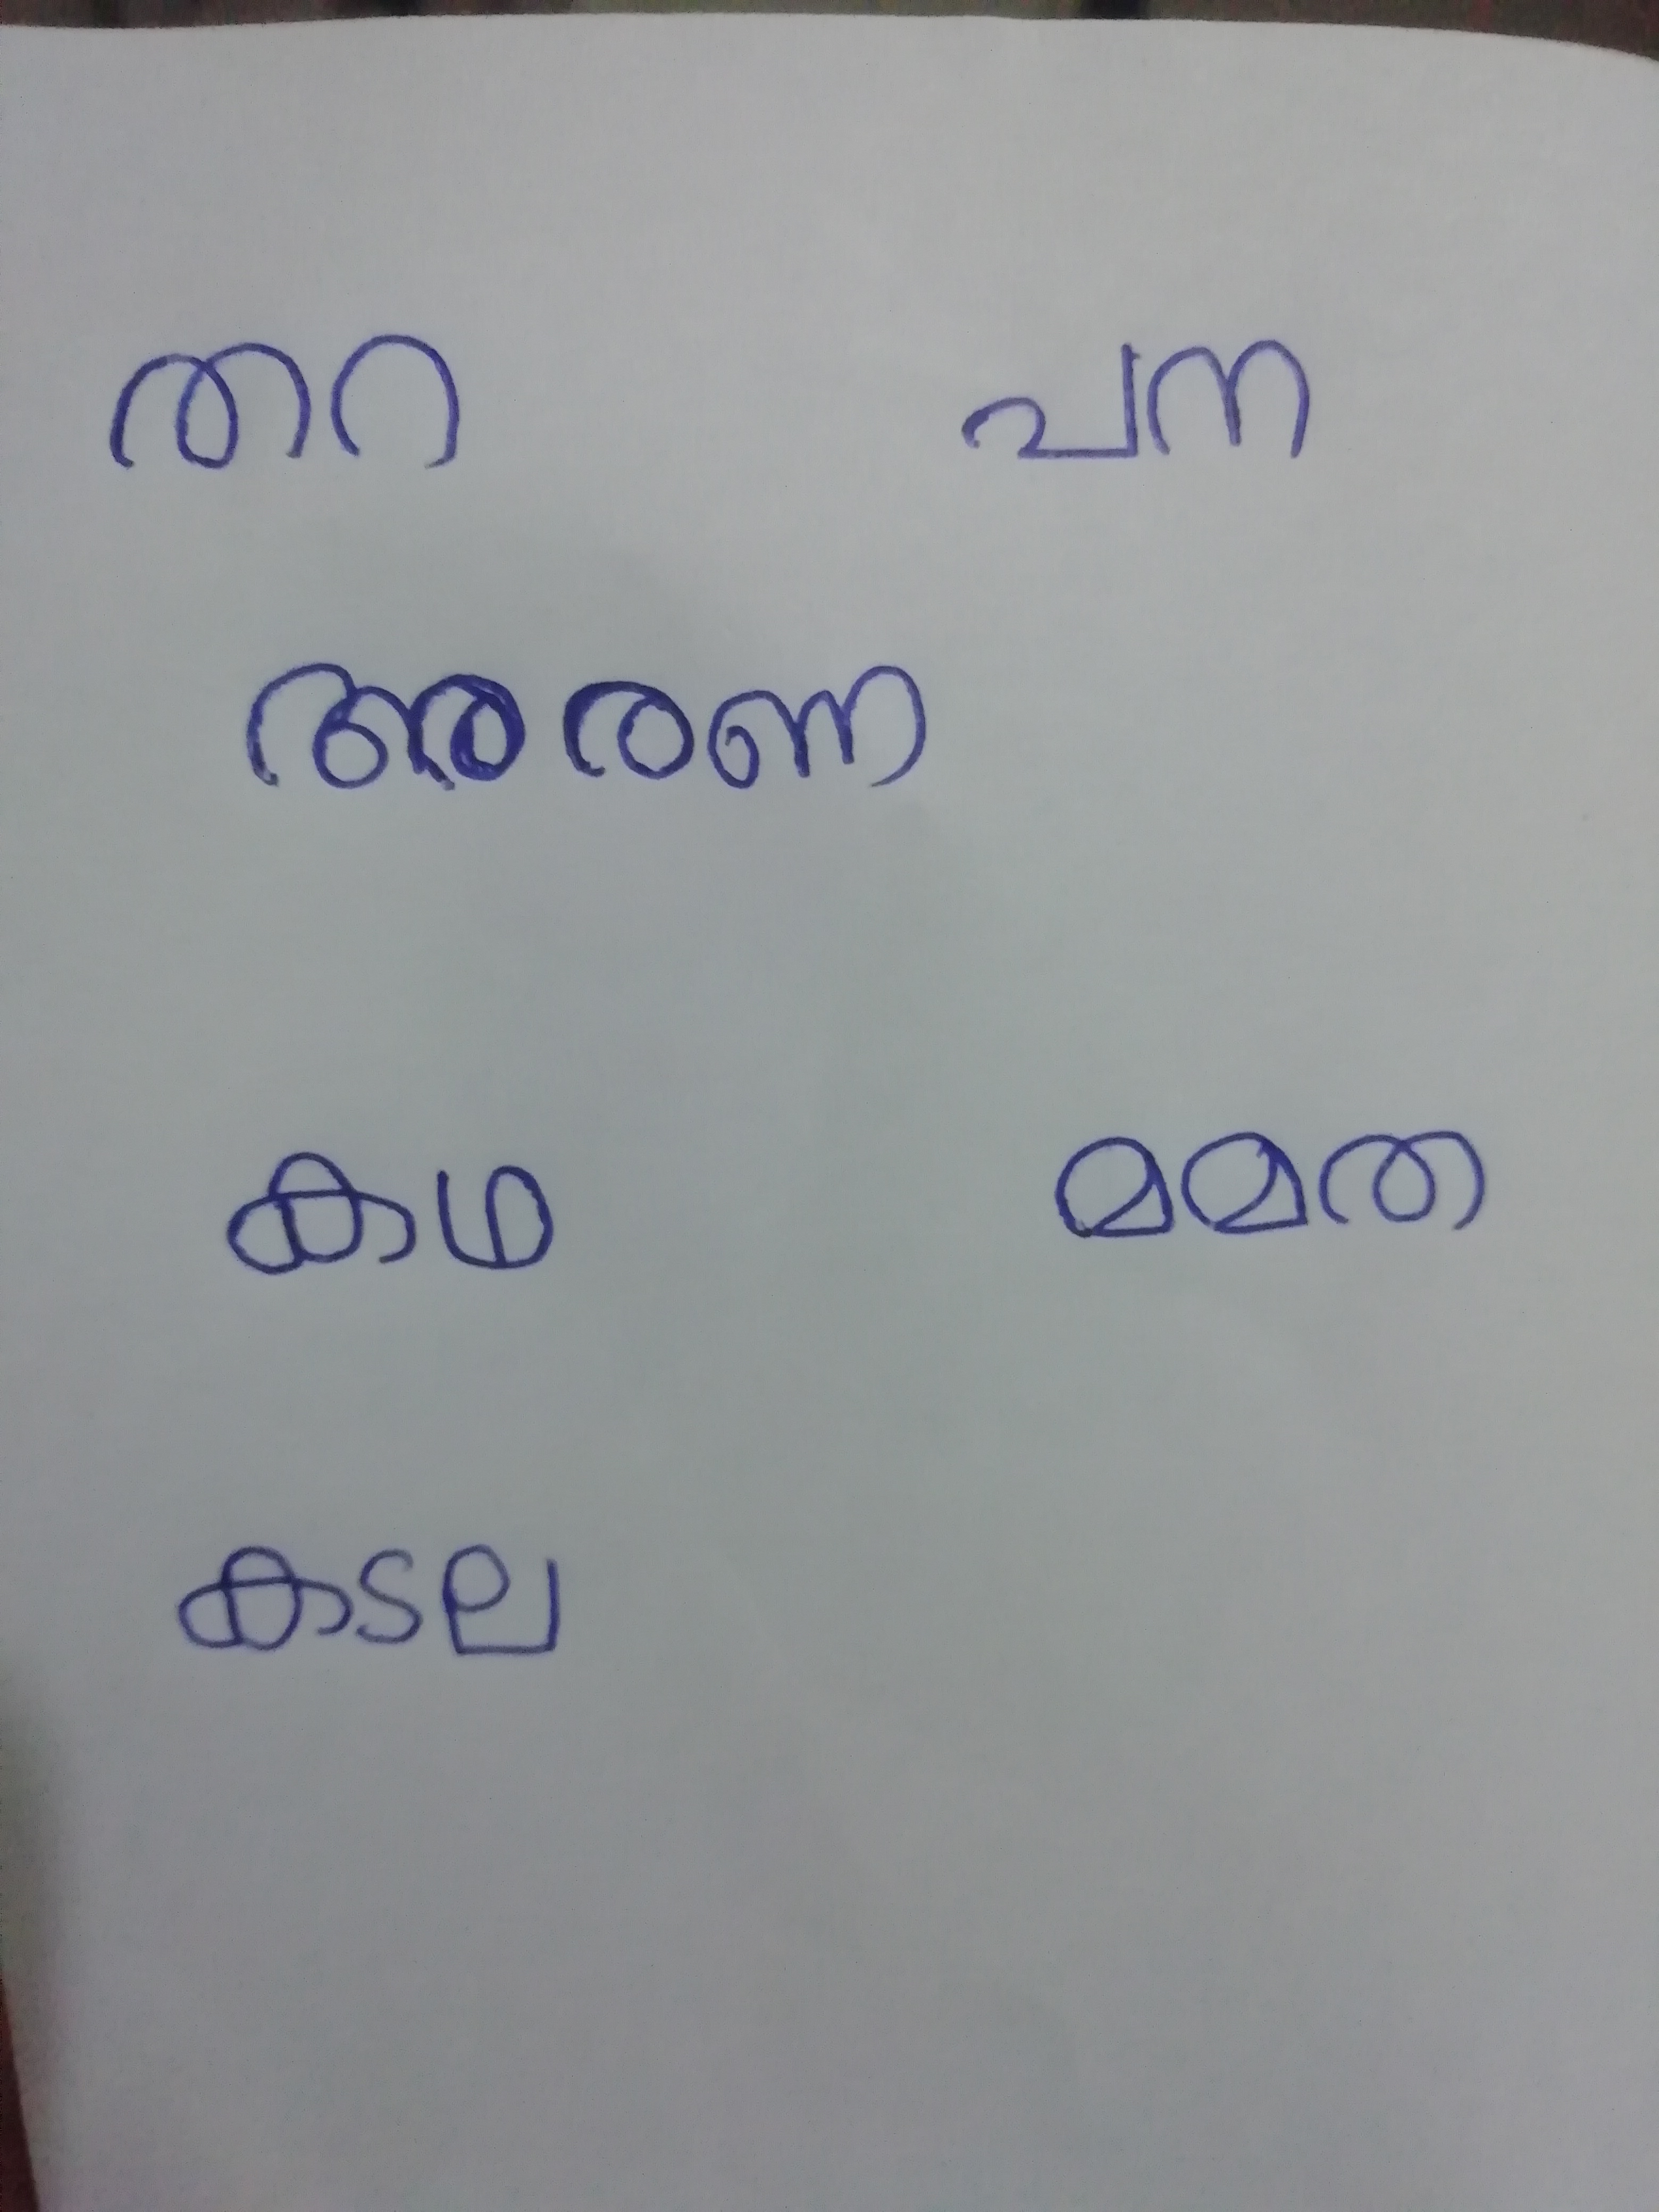 തറ പന
അരണ
കഥ മമത
കടല